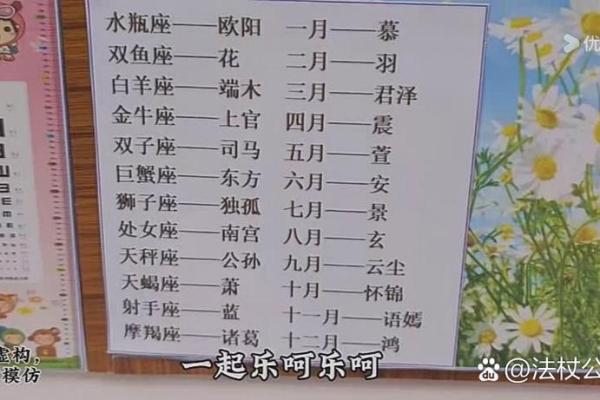 水瓶座——欧阳 一月——慕
双鱼座——花 二月——羽
白羊座——端木 三月——君泽
金牛座——上官 四月——震
双子座——司马 五月——萱
巨蟹座——东方 六月——安
狮子座——独孤 七月——景
处女座——南宫 八月——玄
天秤座——公孙 九月——云尘
天蝎座——萧 十月——怀锦
射手座——蓝 十一月——语嫣
摩羯座——诸葛 十二月——鸿
一起乐呵乐呵
虚构,
模仿
优
du @法杖公